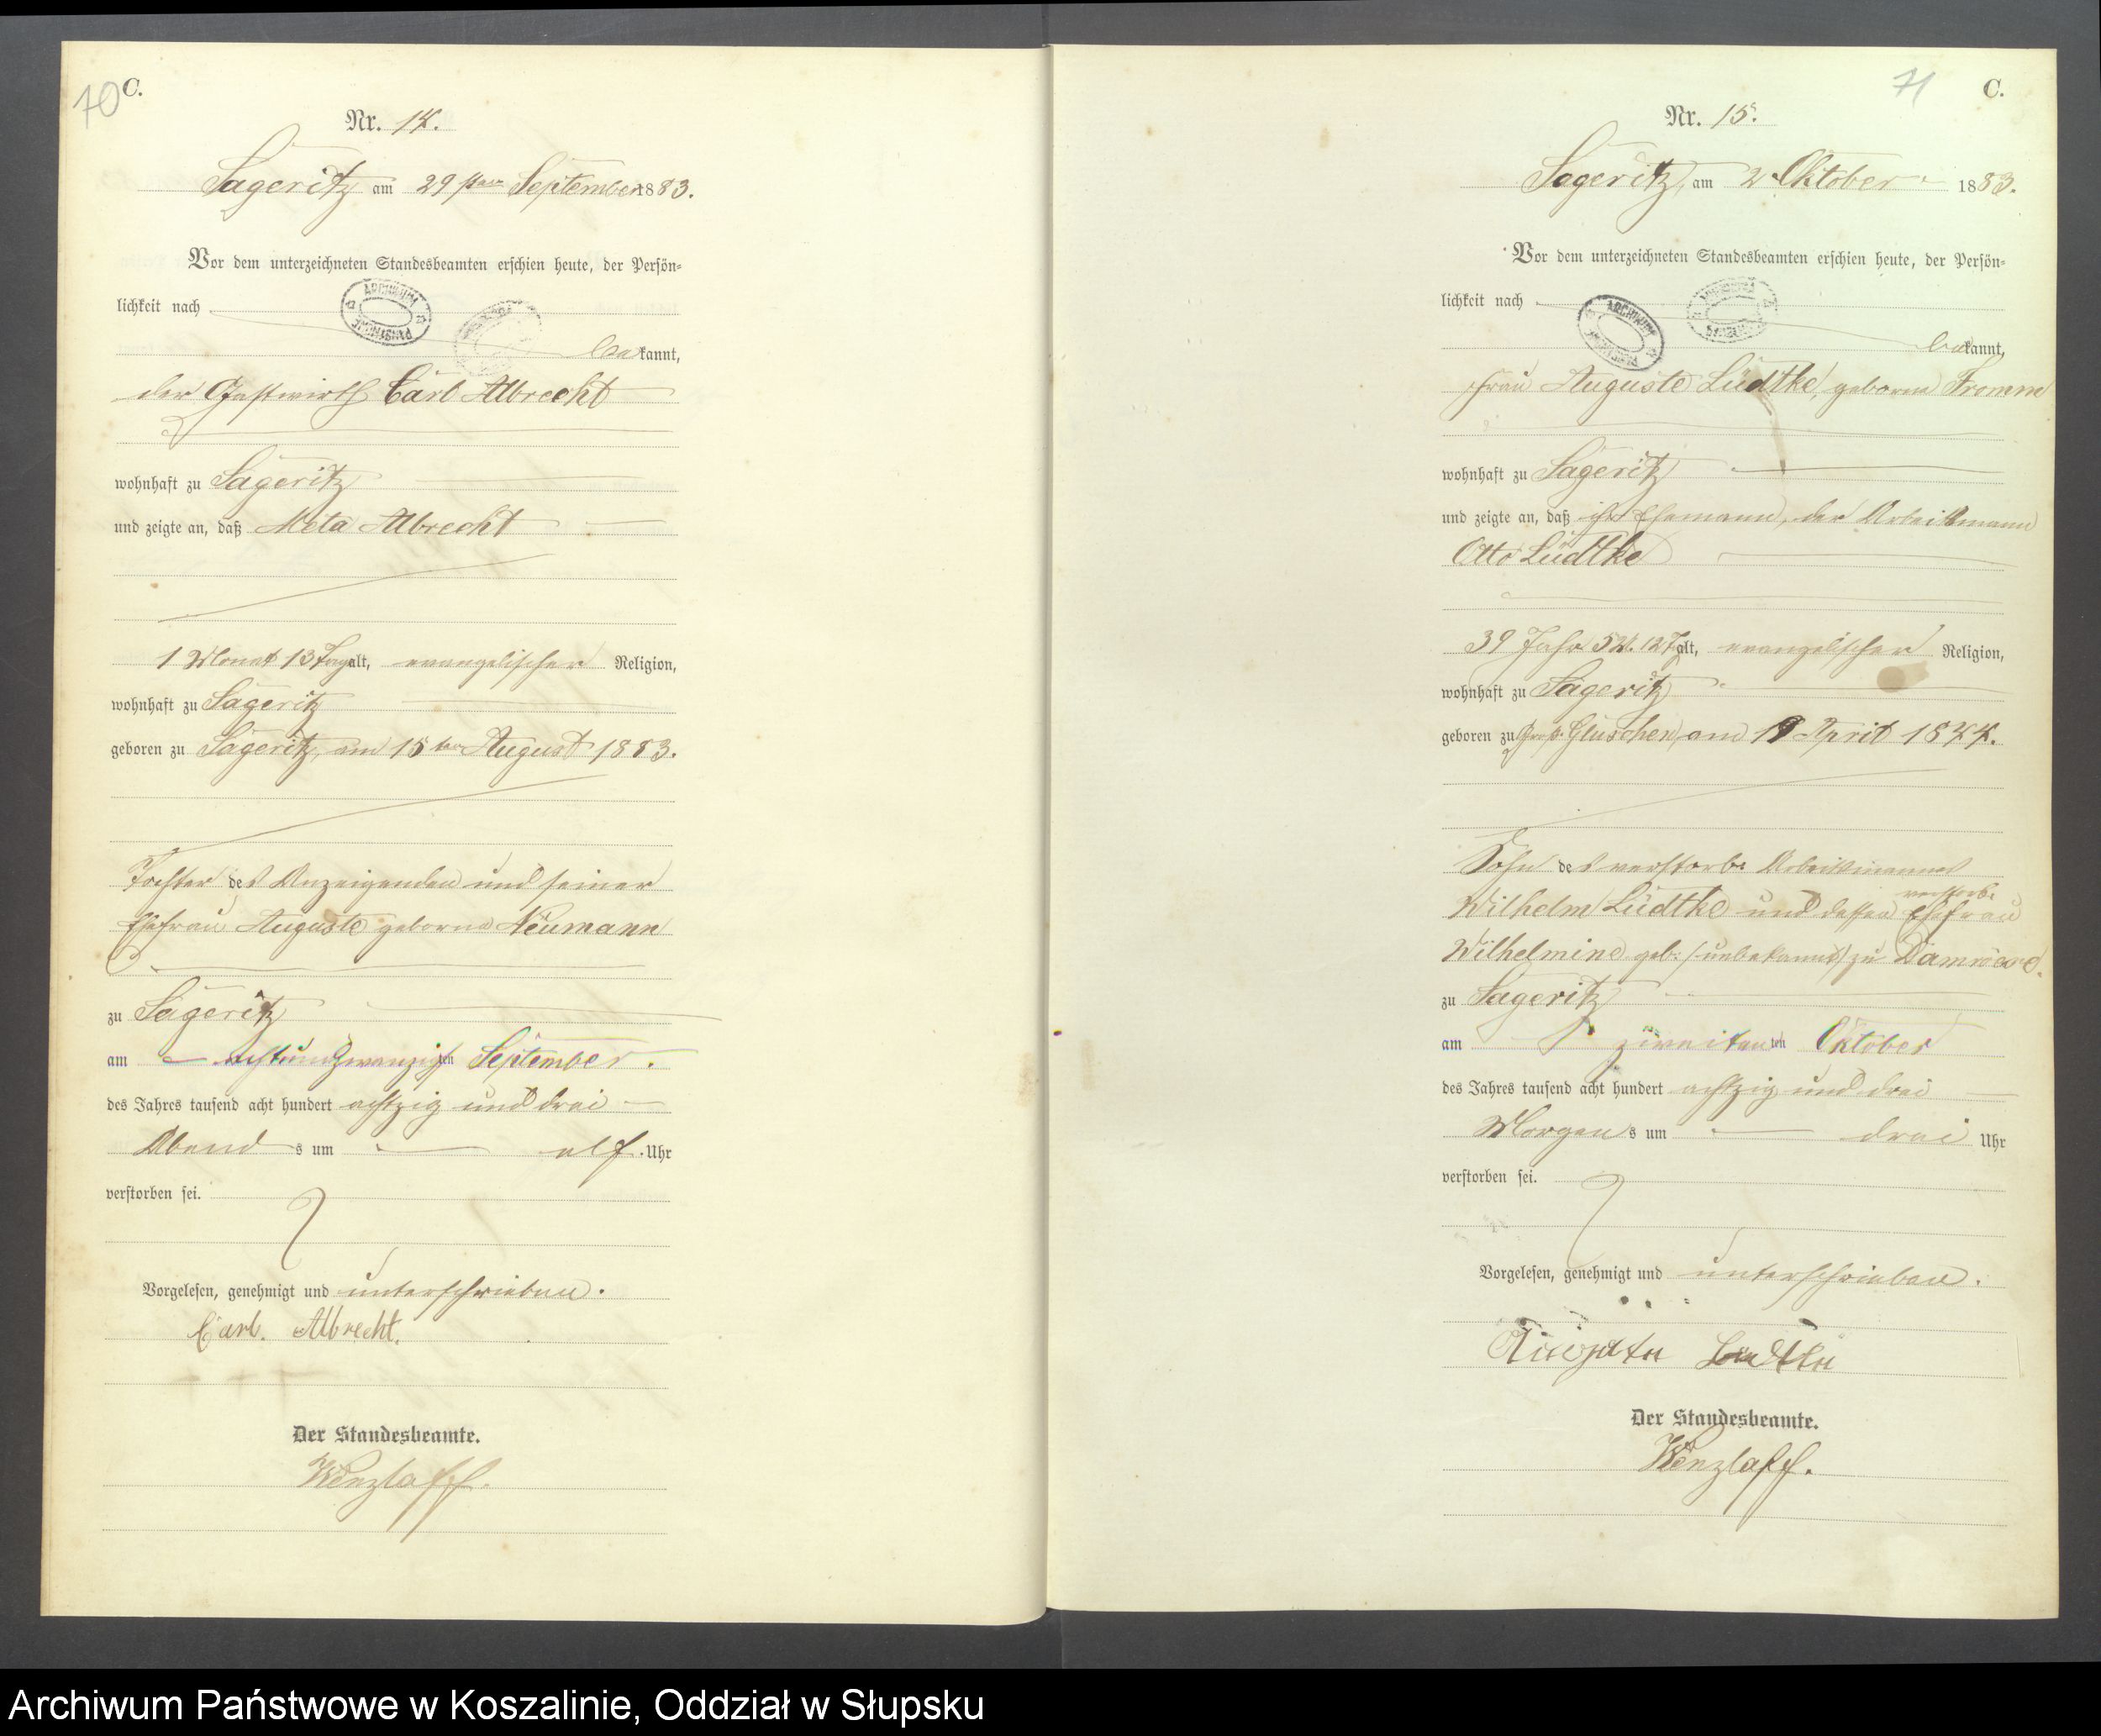 70
C.
Nr. 14.
Sageritz am 29sten September 1883.
Vor dem unterzeichneten Standesbeamten erschien heute, der Persön-
lichkeit nach
bekannt,
der Gastwirth Carl Albrecht
wohnhaft zu Sageritz
und zeigte an, daß Meta Albrecht
1 Monat 13 Tage alt, evangelischer Religion,
wohnhaft zu Sageritz
geboren zu Sageritz, am 15ten August 1883.
Tochter des Anzeigenden und seiner
Ehefrau Auguste geborne Neumann
zu Sageritz
am achtundzwanzigsten September.
des Jahres tausend acht hundert achtzig und drei
Abends um elf Uhr
verstorben sei.
Vorgelesen, genehmigt und unterschrieben.
Carl. Albrecht.
Der Standesbeamte.
Wenzlaff.
71
C.
Nr. 15.
Sageritz, am 2. Oktober 1883.
Vor dem unterzeichneten Standesbeamten erschien heute, der Persön-
lichkeit nach
bekannt,
Frau Auguste Lüdtke, geborne Fromm
wohnhaft zu Sageritz
und zeigte an, daß ihr Ehemann, der Arbeitsmann
Otto Lüdtke
39 Jahr 5 M. 12 T. alt, evangelischer Religion,
wohnhaft zu Sageritz
geboren zu Groß Gluschen, am 19 April 1844.
Sohn des verstorb. Arbeitsmannes
Wilhelm Lüdtke und dessen verstorb. Ehefrau
Wilhelmine geb. (unbekannt) zu
zu Sageritz
am zweiten Oktober
des Jahres tausend acht hundert achtzig und drei
Morgens um drei Uhr
verstorben sei.
Vorgelesen, genehmigt und unterschrieben.
Auguste Lüdtke
Der Standesbeamte.
Wenzlaff.
Archiwum Państwowe w Koszalinie, Oddział w Słupsku